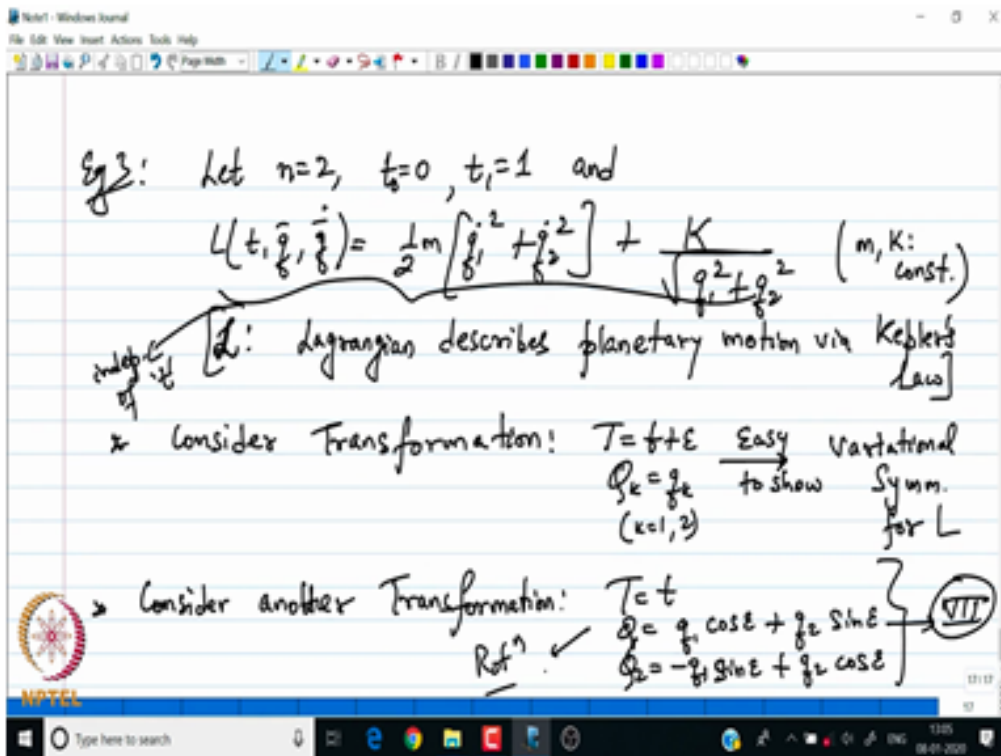 Note1 - Windows Journal
File Edit View Insert Actions Tools Help
Page Width
B I
Eg 3: Let n=2, t₀=0, t₁=1 and
L(t, q̄, q̄̇) = 1/2 m [q̇₁² + q̇₂²] + K/√(q₁² + q₂²) (m, K: const.)
indep. of t [L: Lagrangian describes planetary motion via Kepler's Law]
* Consider Transformation: T = t+ε Easy to show Variational Symm. for L
Qₖ = qₖ
(k=1, 2)
* Consider another Transformation: T = t
Q₁ = q₁ cosε + q₂ sinε VII
Rotⁿ. Q₂ = -q₁ sinε + q₂ cosε
NPTEL
17/17
17
Type here to search
ENG
13:05
08-01-2020